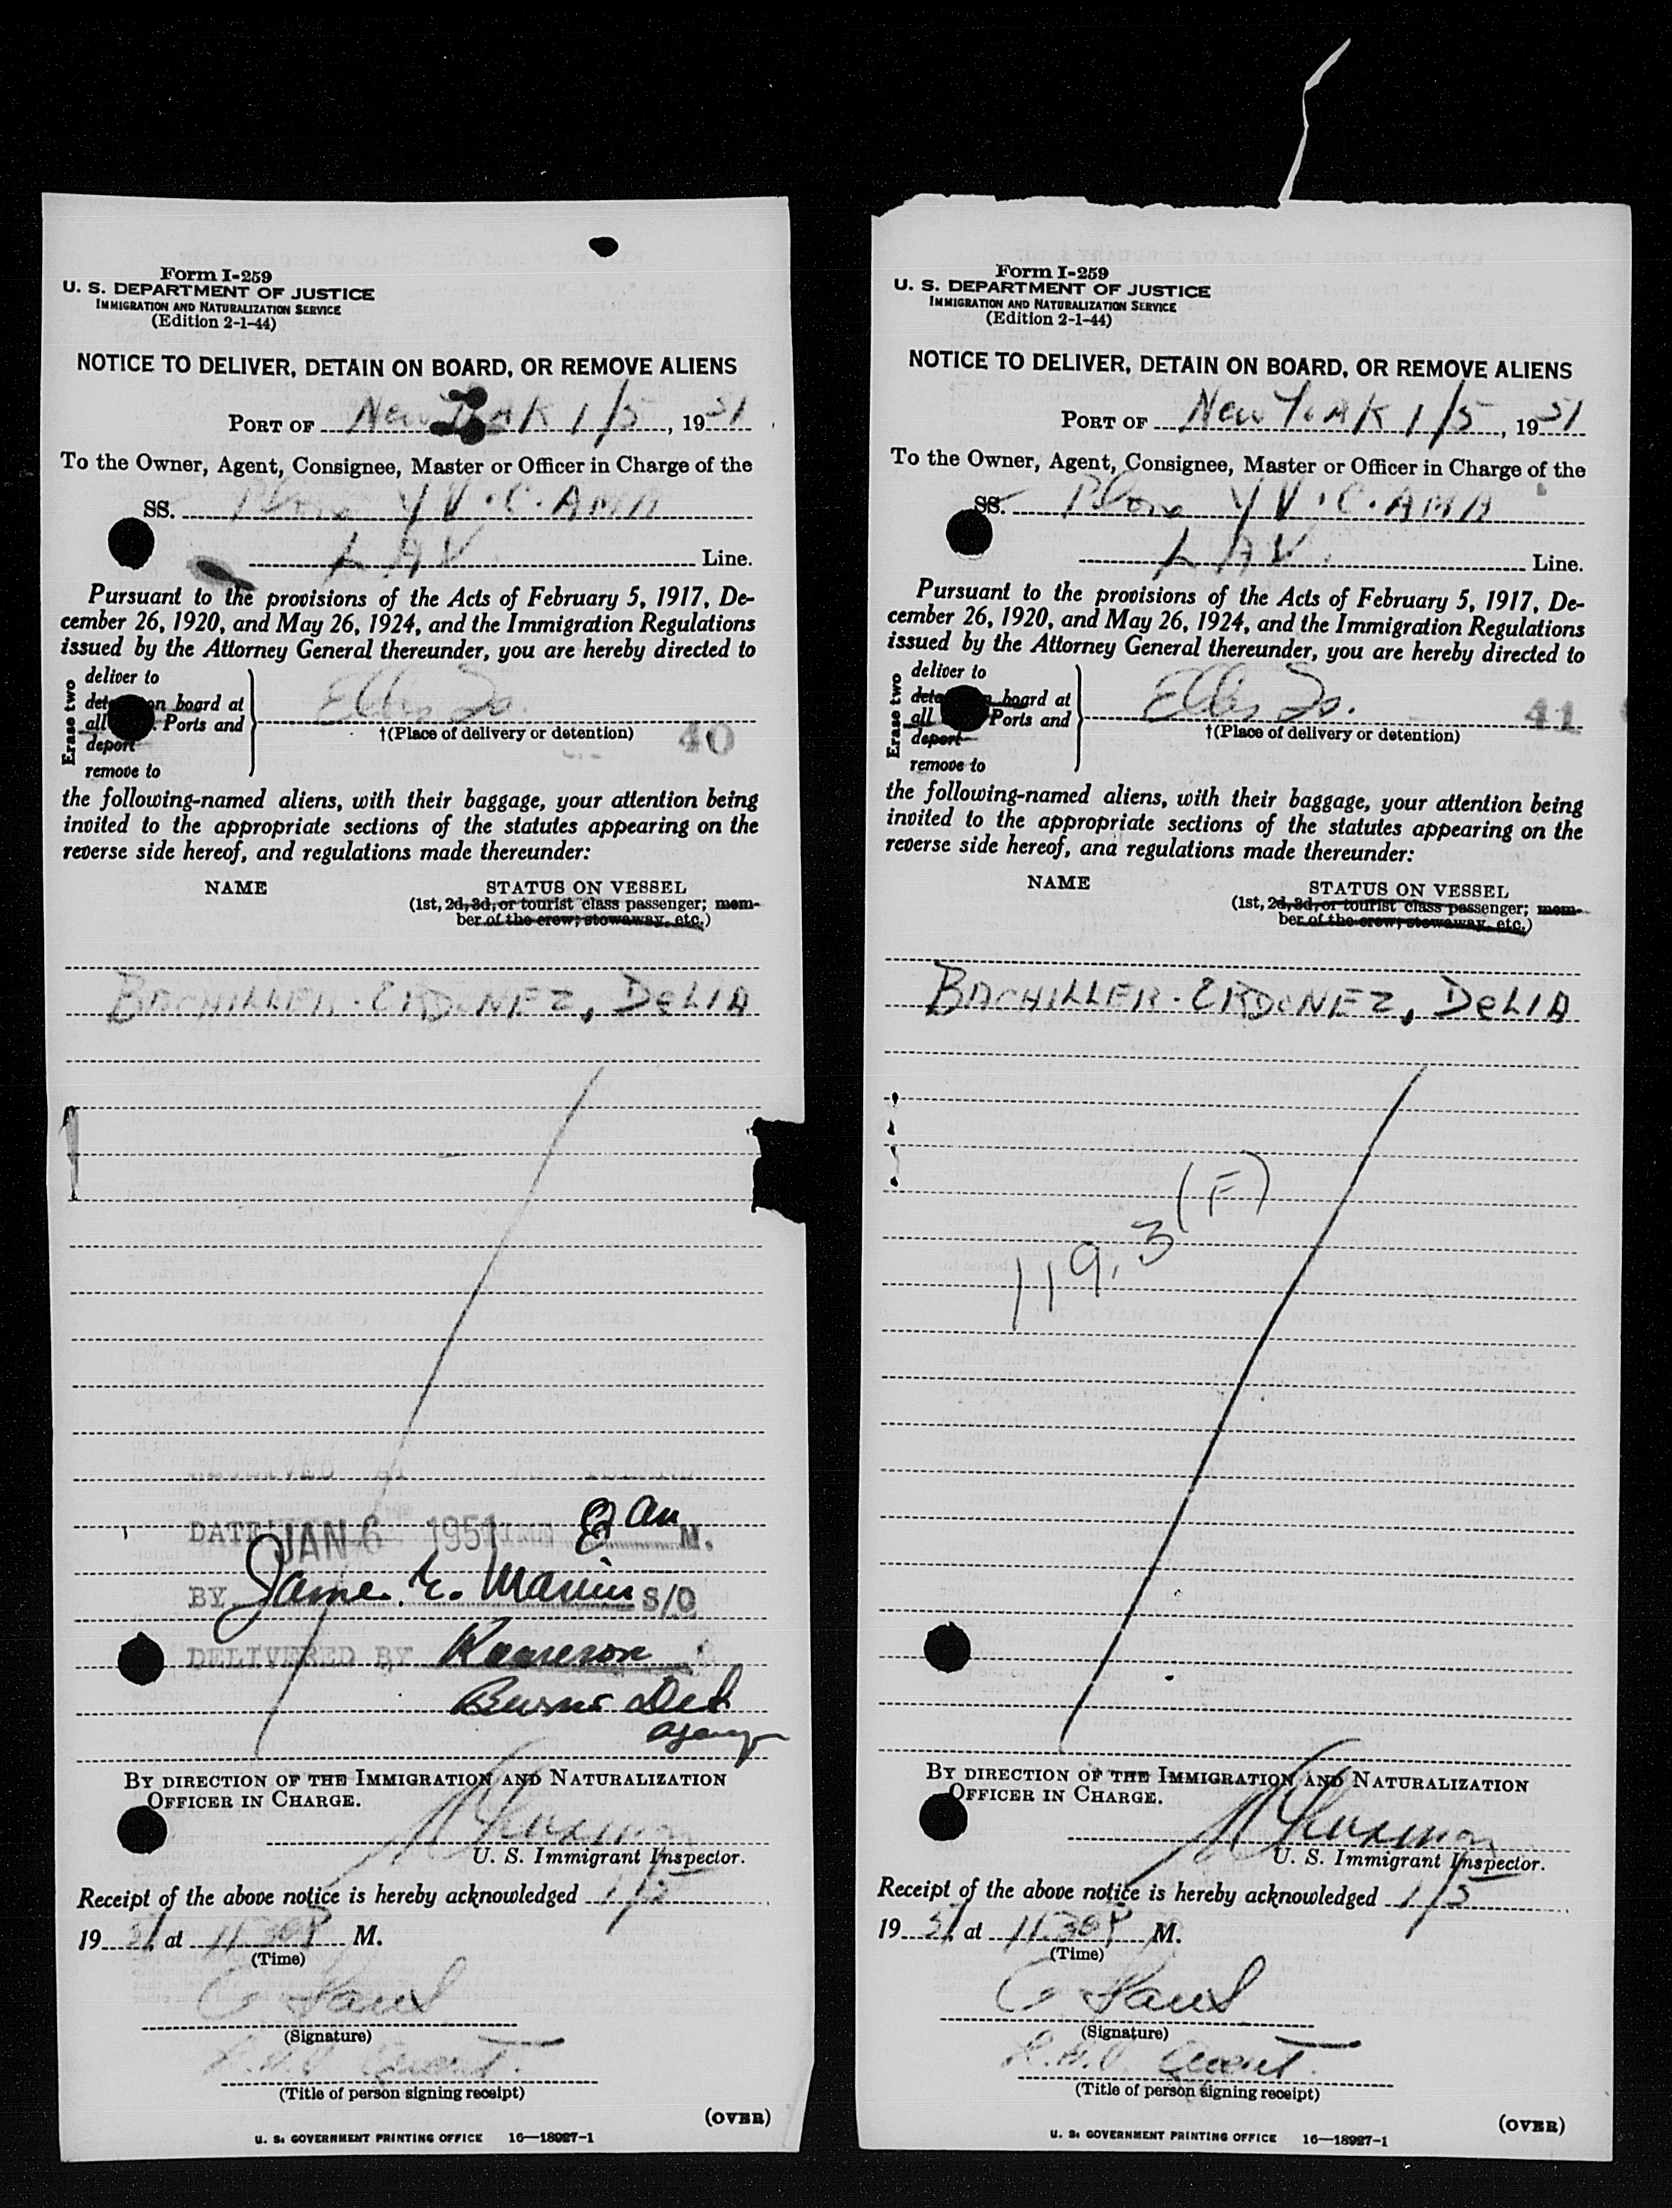 Form I-259
U. S. DEPARTMENT OF JUSTICE
IMMIGRATION AND NATURALIZATION SERVICE
(Edition 2-1-44)
NOTICE TO DELIVER, DETAIN ON BOARD, OR REMOVE ALIENS
PORT OF New York 1/5, 1951
To the Owner, Agent, Consignee, Master or Officer in Charge of the
SS. Plane YV-C-AMA
LAV Line.
Pursuant to the provisions of the Acts of February 5, 1917, De-
cember 26, 1920, and May 26, 1924, and the Immigration Regulations
issued by the Attorney General thereunder, you are hereby directed to
Erase two
deliver to
on board at
all Ports and
deport
remove to
Ellis Is.
†(Place of delivery or detention)
40
the following-named aliens, with their baggage, your attention being
invited to the appropriate sections of the statutes appearing on the
reverse side hereof, and regulations made thereunder:
NAME STATUS ON VESSEL
(1st, 2d, 3d, or tourist class passenger; mem-
ber of the crew; stowaway, etc.)
BACHILLER-ORDONEZ, DELIA
DATE JAN 6 1951 8 am M.
BY James E. S/O
DELIVERED BY
Burns Det
agency
BY DIRECTION OF THE IMMIGRATION AND NATURALIZATION
OFFICER IN CHARGE.
U. S. Immigrant Inspector.
Receipt of the above notice is hereby acknowledged 1/5
1951 at 11:30P M.
(Time)
(Signature)
L.A.V. Agent.
(Title of person signing receipt)
(OVER)
U. S. GOVERNMENT PRINTING OFFICE 16—18927-1
Form I-259
U. S. DEPARTMENT OF JUSTICE
IMMIGRATION AND NATURALIZATION SERVICE
(Edition 2-1-44)
NOTICE TO DELIVER, DETAIN ON BOARD, OR REMOVE ALIENS
PORT OF New York 1/5, 1951
To the Owner, Agent, Consignee, Master or Officer in Charge of the
SS. Plane YV-C-AMA
LAV Line.
Pursuant to the provisions of the Acts of February 5, 1917, De-
cember 26, 1920, and May 26, 1924, and the Immigration Regulations
issued by the Attorney General thereunder, you are hereby directed to
Erase two
deliver to
board at
all Ports and
deport
remove to
Ellis Is.
†(Place of delivery or detention)
41
the following-named aliens, with their baggage, your attention being
invited to the appropriate sections of the statutes appearing on the
reverse side hereof, and regulations made thereunder:
NAME STATUS ON VESSEL
(1st, 2d, 3d, or tourist class passenger; mem-
ber of the crew; stowaway, etc.)
BACHILLER-ORDONEZ, DELIA
119.3 (F)
BY DIRECTION OF THE IMMIGRATION AND NATURALIZATION
OFFICER IN CHARGE.
U. S. Immigrant Inspector.
Receipt of the above notice is hereby acknowledged 1/5
1951 at 11:30P M.
(Time)
(Signature)
L.A.V. Agent.
(Title of person signing receipt)
(OVER)
U. S. GOVERNMENT PRINTING OFFICE 16—18927-1